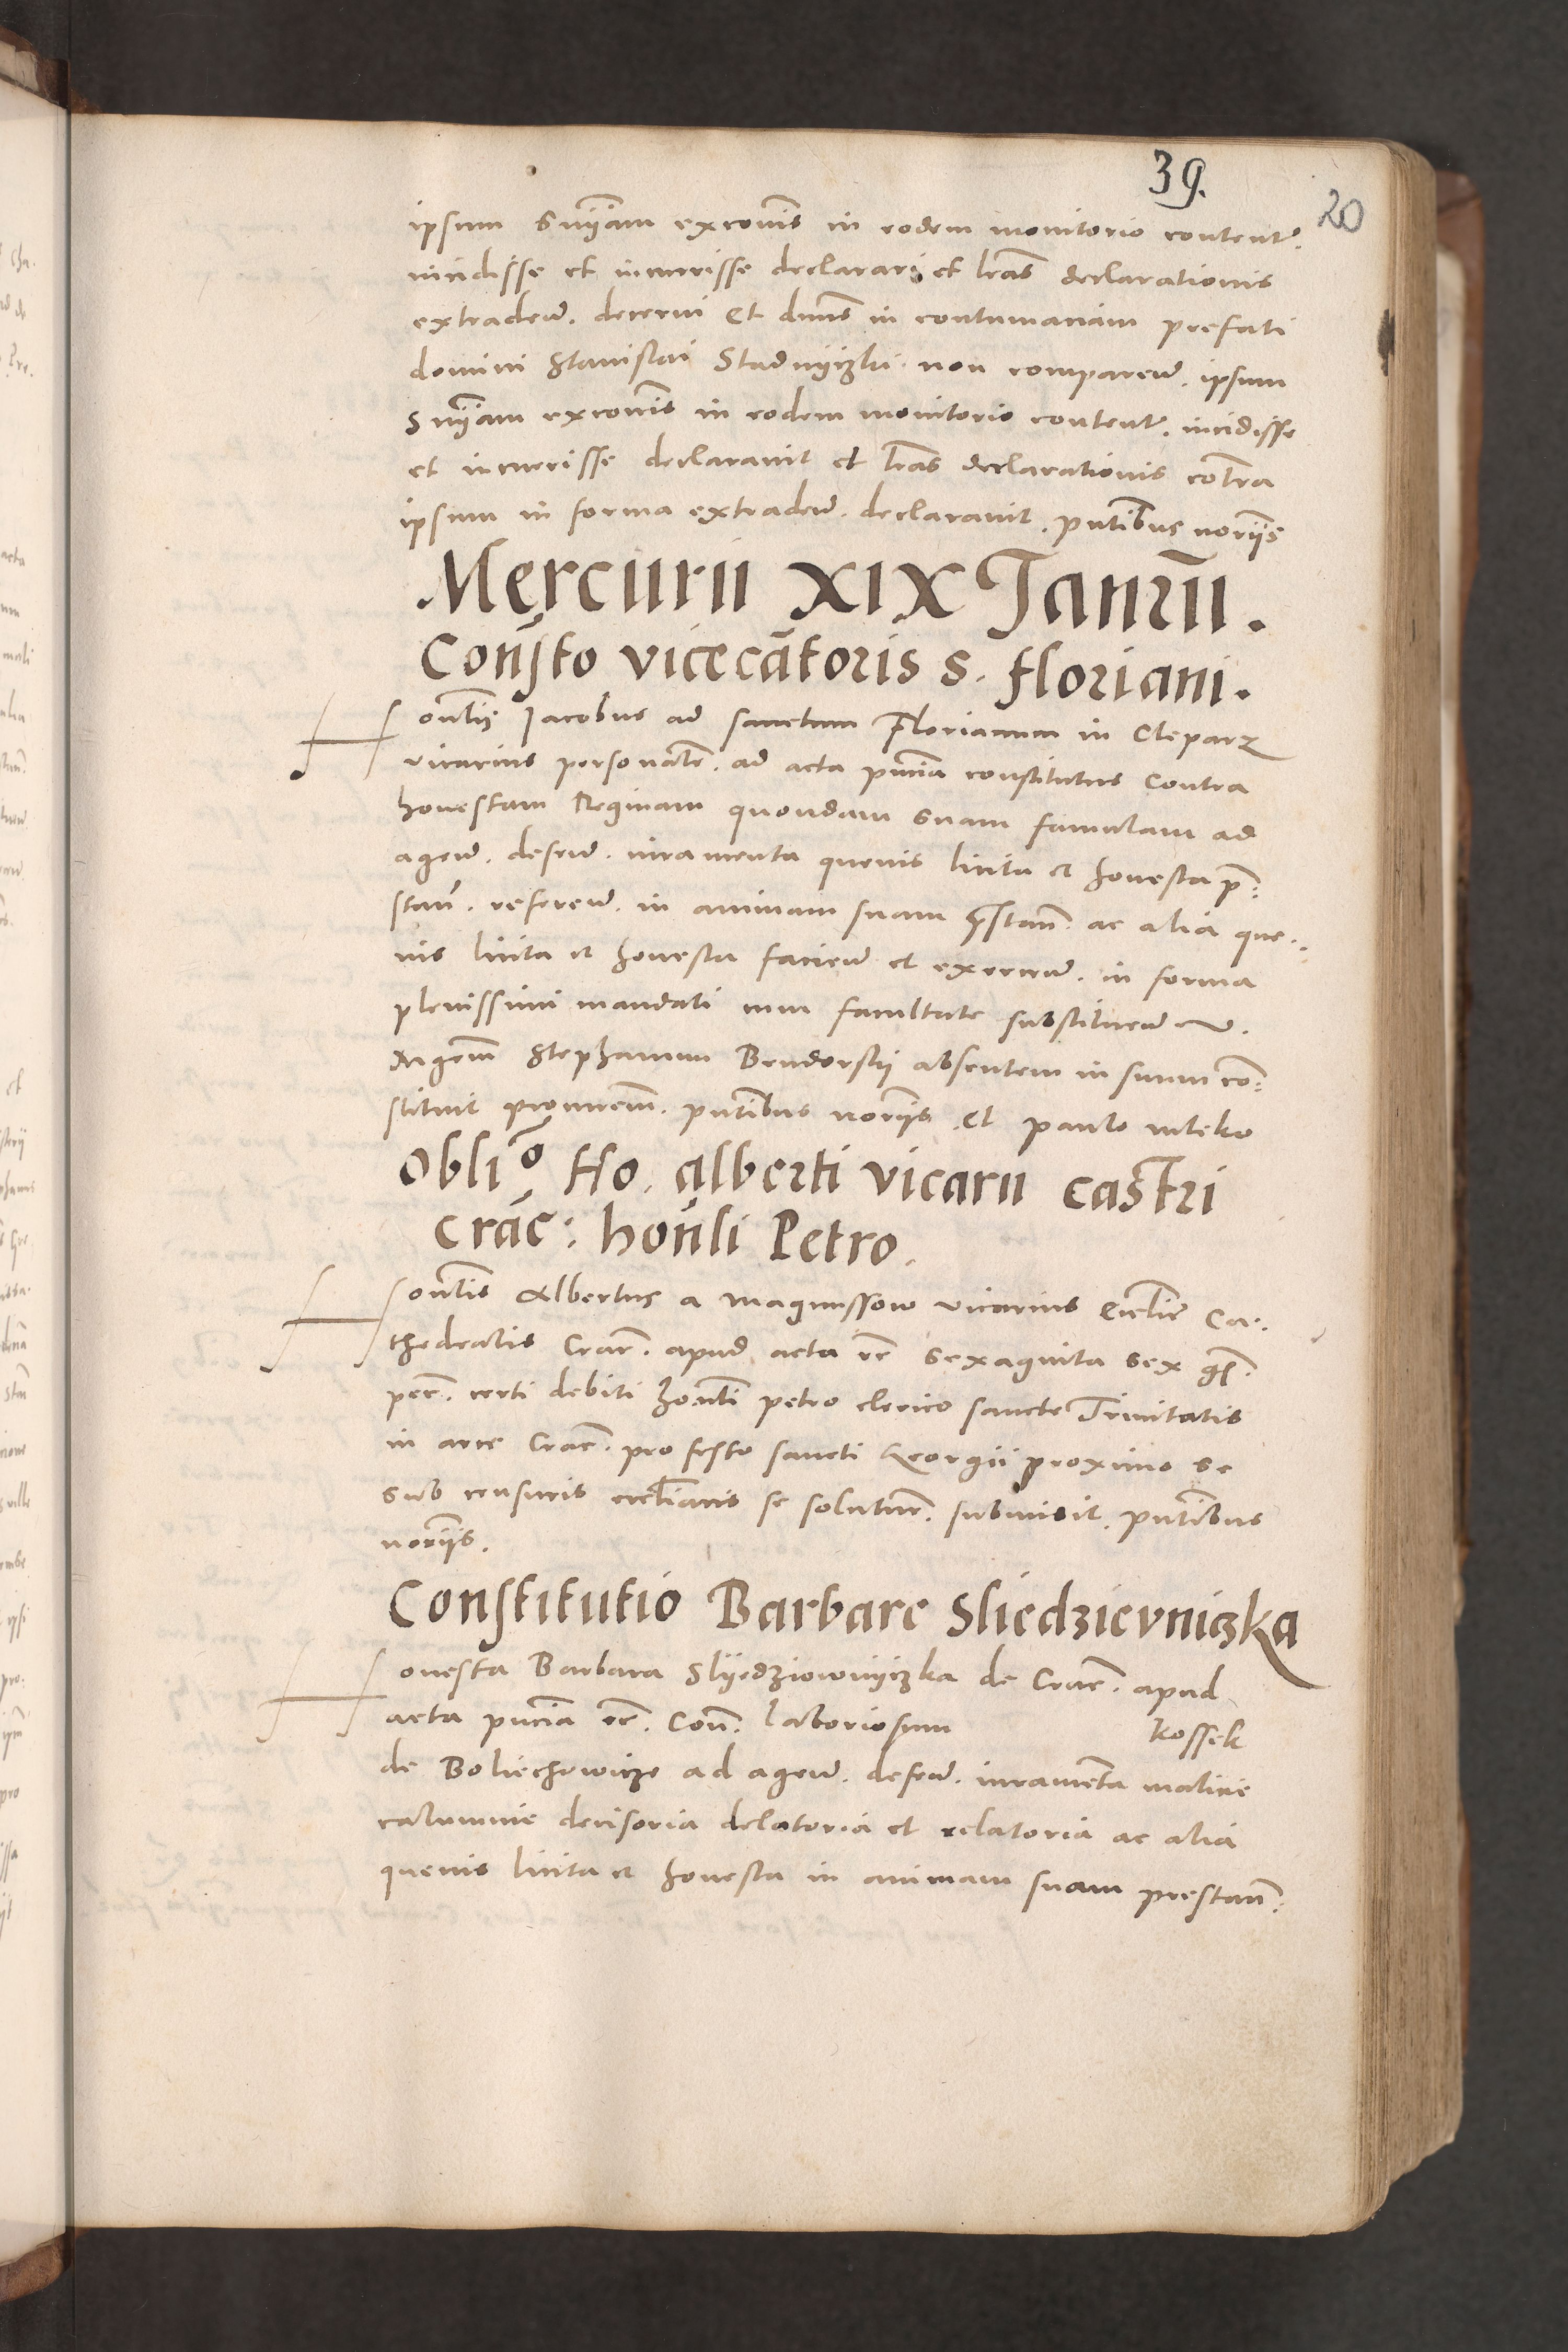 39.
20
ipsum snÿam excois in eodem monitorio content.
incidisse et incurrisse declarari et lras declarationis
extradeñ. decerni Et dnus in contumaciam prefati
domini Stanislai Stadnÿczki non compareñ. ipsum
snÿam excois in eodem monitorio content. incidisse
et incurrisse declaravit et lras declarationis cotra
ipsum in forma extradeñ. declaravit. pntibus noriis
Mercurii XIX Januarii.
Consto vicecantoris S. Floriani.
Honlis Jacobus ad sanctum Florianum in Cleparz
vicarius personalr. ad acta pncia constitutus Contra
honestam Reginam quondam suam famulam ad
ageñ. defeñ. iuramenta quevis licita et honesta p:
stañ. refereñ. in animam suam pstañ. ac alia que:
vis licita et honesta facieñ et exerceñ. in forma
plenissimi mandati cum facultate substitueñ.
Stephanum Bendorskii absentem in suum co:
stituit procurem. pntibus noriis et paulo
Oblio Ho. alberti vicarii castri
crac: honli Petro.
Honlis Albertus a Magnussow vicarius Ecclie Ca:
thedralis Crac. apud acta rec sexaginta sex gs.
pec. certi debiti honli petro clerico sancte Trinitatis
in arce Crac. pro festo sancti Georgii proximo se
sub censuris eccliacis se soluturm. submisit. pntibus
noriis.
Constitutio Barbare Sliedzievniczka
Honesta Barbara Slÿedziownÿczka de Crac. apud
acta pncia rec. Con. laboriosum Kossek
de Boliechowicze ad ageñ. defeñ. iuramenta malicie
calumnie decisoria delatoria et relatoria ac alia
quevis licita et honesta in animam suam prestañ: